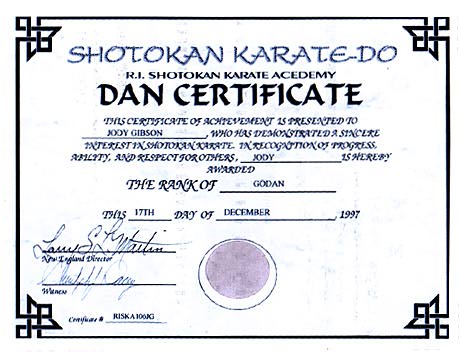 SHOTOKAN KARATE-DO
R.I. SHOTOKAN KARATE ACEDEMY
DAN CERTIFICATE
THIS CERTIFICATE OF ACHIEVEMENT IS PRESENTED TO
JODY GIBSON, WHO HAS DEMONSTRATED A SINCERE
INTEREST IN SHOTOKAN KARATE. IN RECOGNITION OF PROGRESS,
ABILITY, AND RESPECT FOR OTHERS, JODY IS HEREBY
AWARDED
THE RANK OF GODAN
THIS 17TH DAY OF DECEMBER, 1997
Larry S. Martin
New England Director
Witness
Certificate # RISKA106JG